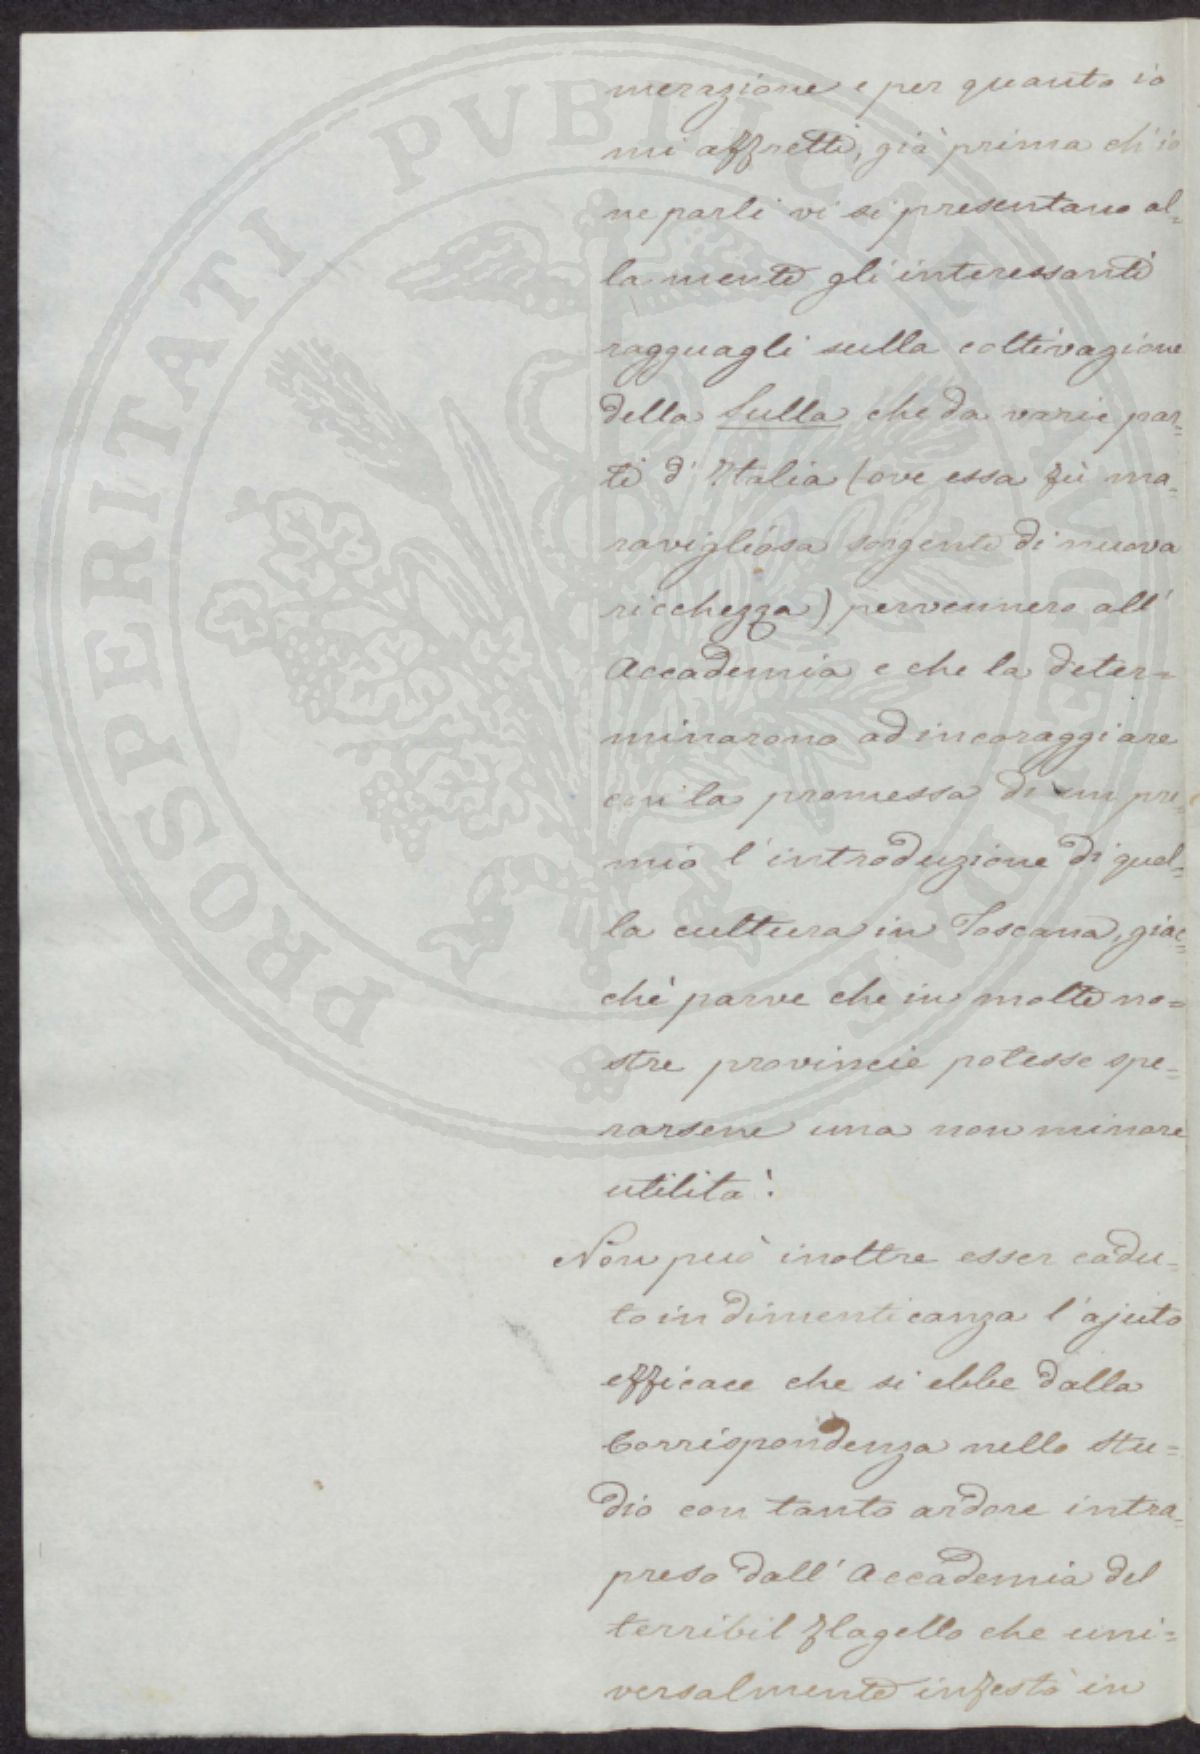 merazione e per quanto io
mi affretti, già prima ch'io
ne parli vi si presentano al=
la mente gli interessanti
ragguagli sulla coltivazione
della Sulla che da varie par=
ti d'Italia (ove essa fù ma=
ravigliosa sorgente di nuova
ricchezza) pervennero all'
Accademia e che la deter=
minarono ad incoraggiare
con la promessa di un pre
mio l'introduzione di quel=
la cultura in Toscana, giac=
chè parve che in molte no=
stre provincie potesse spe=
rarsene una non minore
utilità.
Non può inoltre esser cadu=
to in dimenticanza l'ajuto
efficace che si ebbe dalla
Corrispondenza nello stu=
dio con tanto ardore intra=
preso dall'Accademia del
terribil flagello che uni=
versalmente infestò in
PROSPERITATI PVBLICAE AVGENDAE